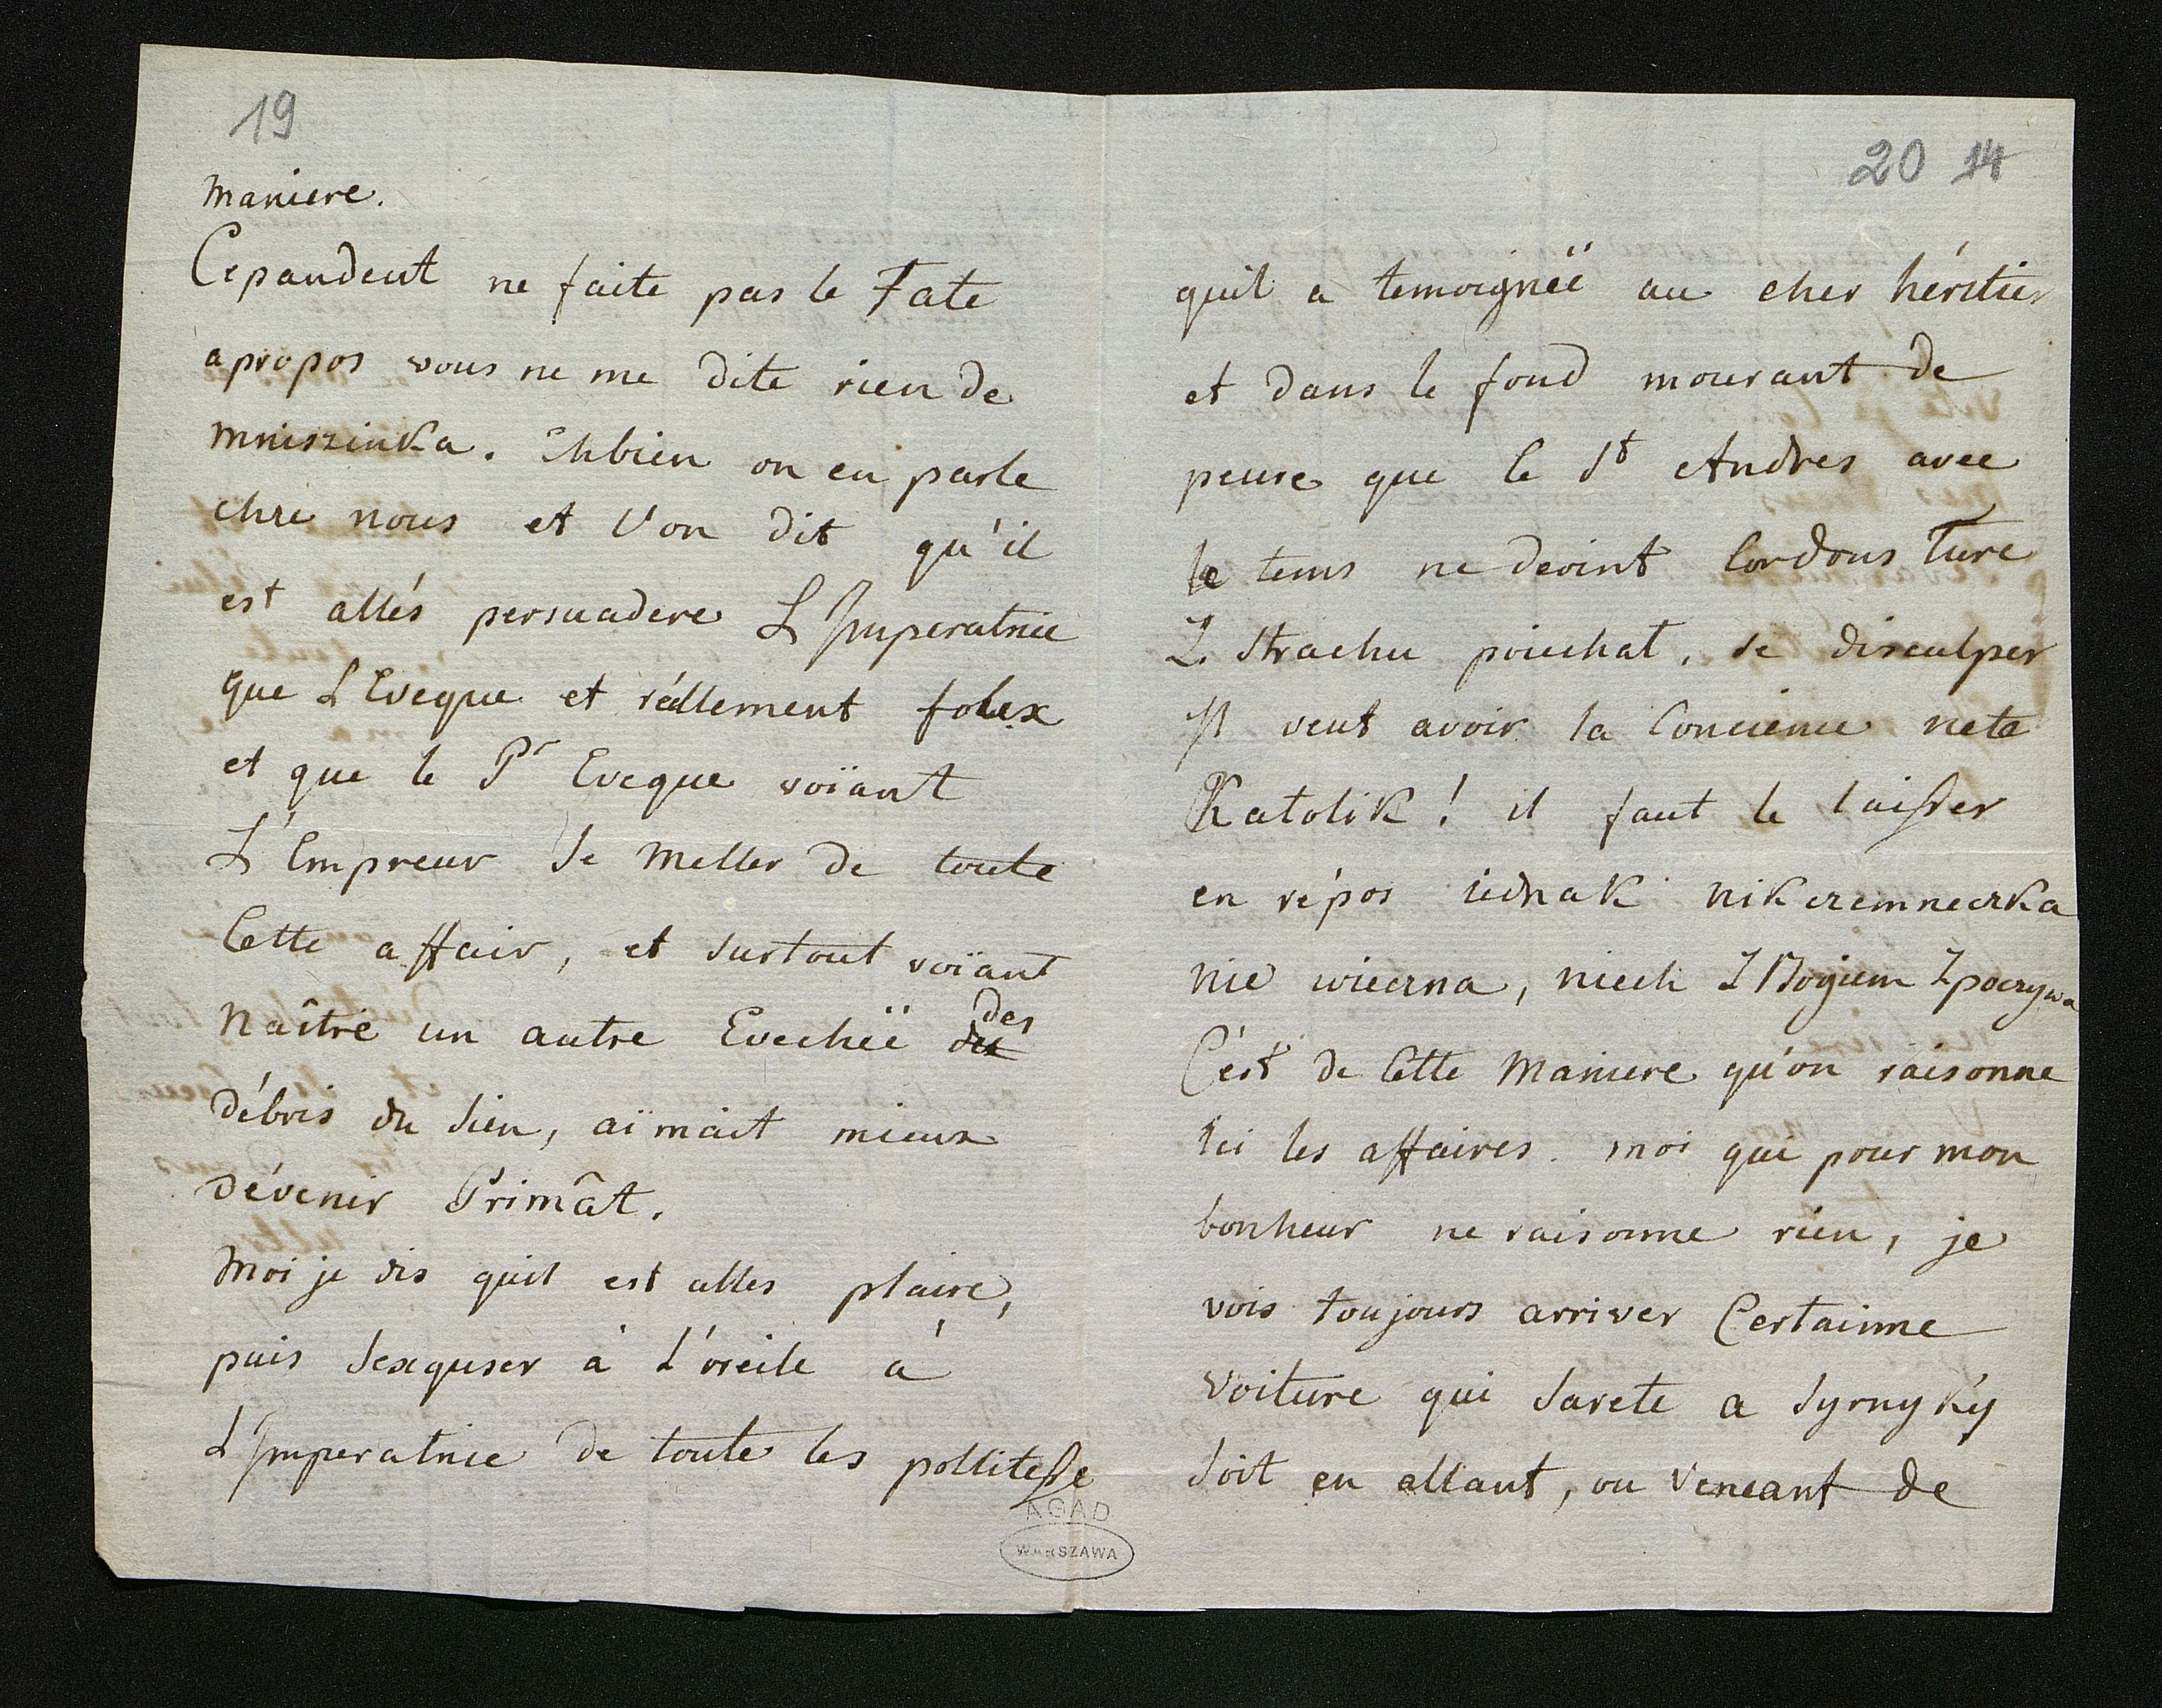 19
maniere.
Cepandent ne faite pas le Fate
apropos vous ne me dite rien de
mniszinka. Ehbien on en parle
chre nous et l'on dit qu'il
est allés persuadere L'Imperatrice
que L'Eveque et réllement folex
et que le Pr Eveque voïant
L'Empreur Se meller de toute
Cette affair, et surtout voïant
Naître un autre Evechéé des
débris du Sien, aïmait mieux
dévenir Primât.
Moi je dis quil est alles plaire,
puis Sexquser à L'oreile à
L'Imperatrice de toute les pollitesse
AGAD
WARSZAWA
20 14
quil a temoignéé au cher héritier
et dans le fond mourant de
peure que le St Andres avec
le tems ne devint Cordons Turc
Z Strachu poiechat, se disculper
Il veut avoir la Concience nete
Katolik! il faut le laisser
en répos iednak nikczemneczka
nie wieczna, niech Z Bogiem Zpoczywa
C'est de Cette Maniere qu'on raisonne
Ici les affaires. moi qui pour mon
bonheur ne raisonne rien, je
vois toujours arriver Certainne
Voiture qui Sarete a Syrnyky
Soit en allant, ou Veneant de